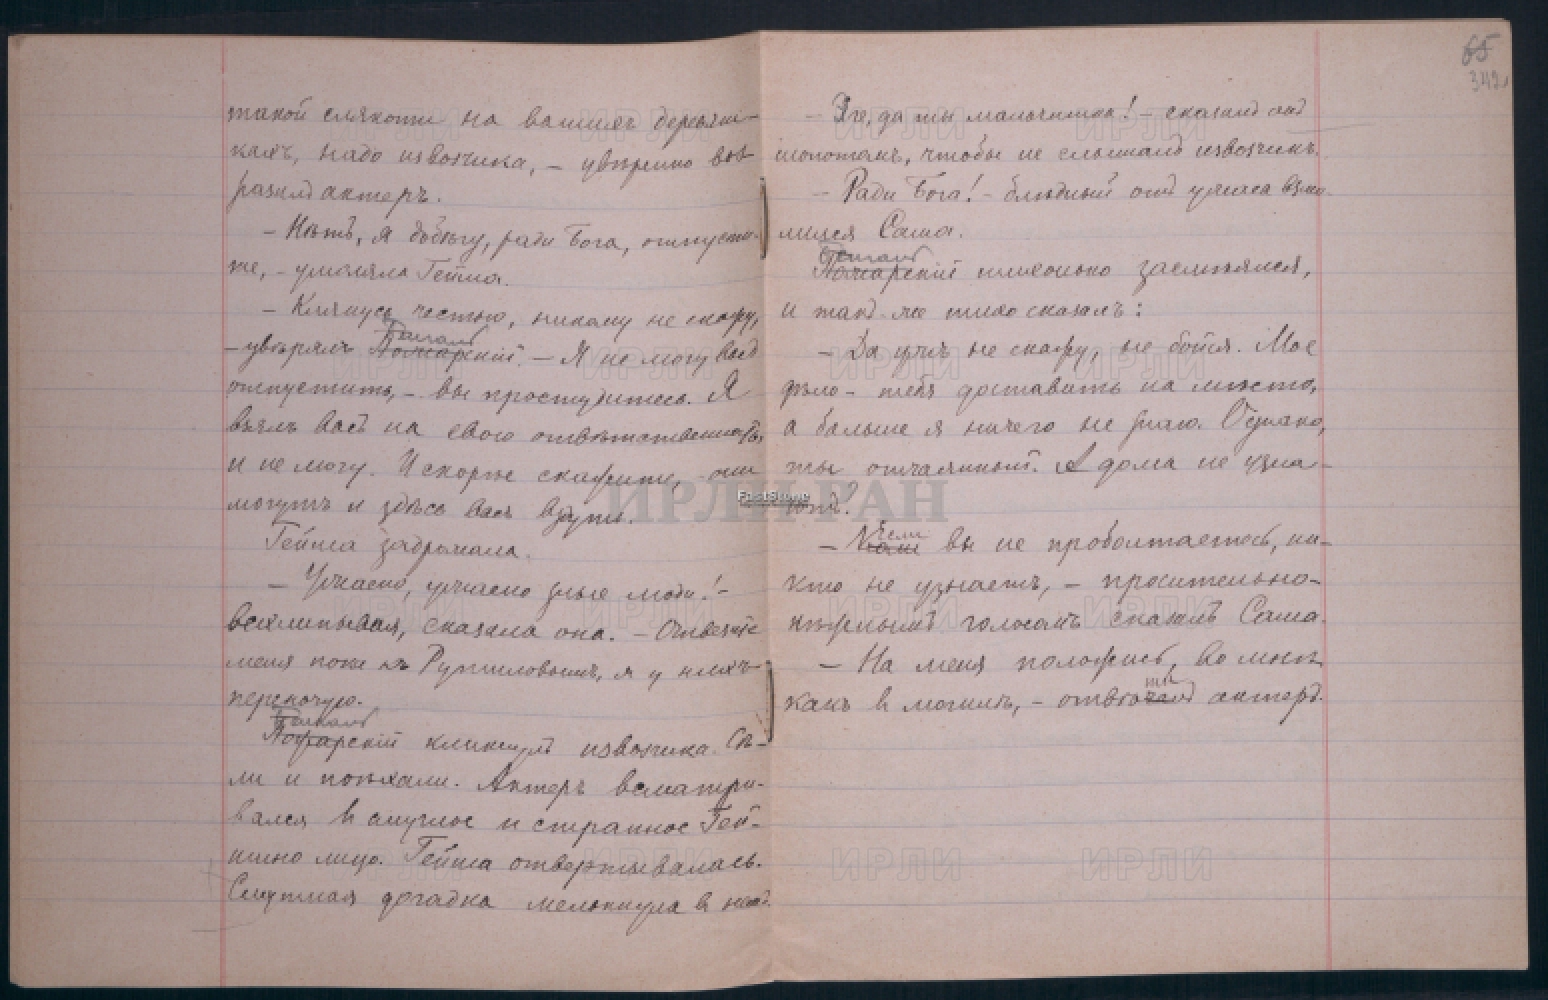 такой слякоти на вашихъ деревяш-
кахъ, надо извозчика, – увѣренно воз
разилъ актеръ.
– Нѣтъ, я добѣгу, ради Бога, отпусти-
те, – умоляла Гейша.
– Клянусь честью, никому не скажу,
Бенгальскій
– увѣрялъ Пожарскій. – Я не могу васъ
отпустить, – вы простудитесь. Я
взялъ васъ на свою отвѣтственность,
и не могу. И скорѣе скажите, – они
могутъ и здѣсь васъ вздуть.
Гейша задрожала.
– Ужасно, ужасно злые люди! –
всхлипывая, сказала она. – Отвезите
меня пока къ Рутиловымъ, я у нихъ
переночую.
Бенгаль
Пожарскій кликнулъ извозчика. Сѣ-
ли и поѣхали. Актеръ всматри-
вался в смуглое и странное Гей-
шино лицо. Гейша отвертывалась.
Смутная догадка мелькнула в немъ.
65
342
– Эге, да ты мальчишка! – сказалъ онъ
шопотомъ, чтобы не слышалъ извозчикъ.
– Ради Бога! – блѣдный отъ ужаса взмо-
лился Саша.
Бенгаль
Пожарскій тихонько засмѣялся,
и такъ же тихо сказалъ:
– Да ужъ не скажу, не бойся. Мое
дѣло – тебя доставить на мѣсто,
а больше я ничего не знаю. Однако,
ты отчаянный. А дома не узна-
ютъ?
Если
– Коли вы не проболтаетесь, ни-
кто не узнаетъ, – просительно-
нѣжнымъ голосомъ сказалъ Саша.
– На меня положись, во мнѣ
ти
какъ в могилѣ, – отвѣчалъ актеръ.
ИРЛИ РАН
FastStone
ИРЛИ